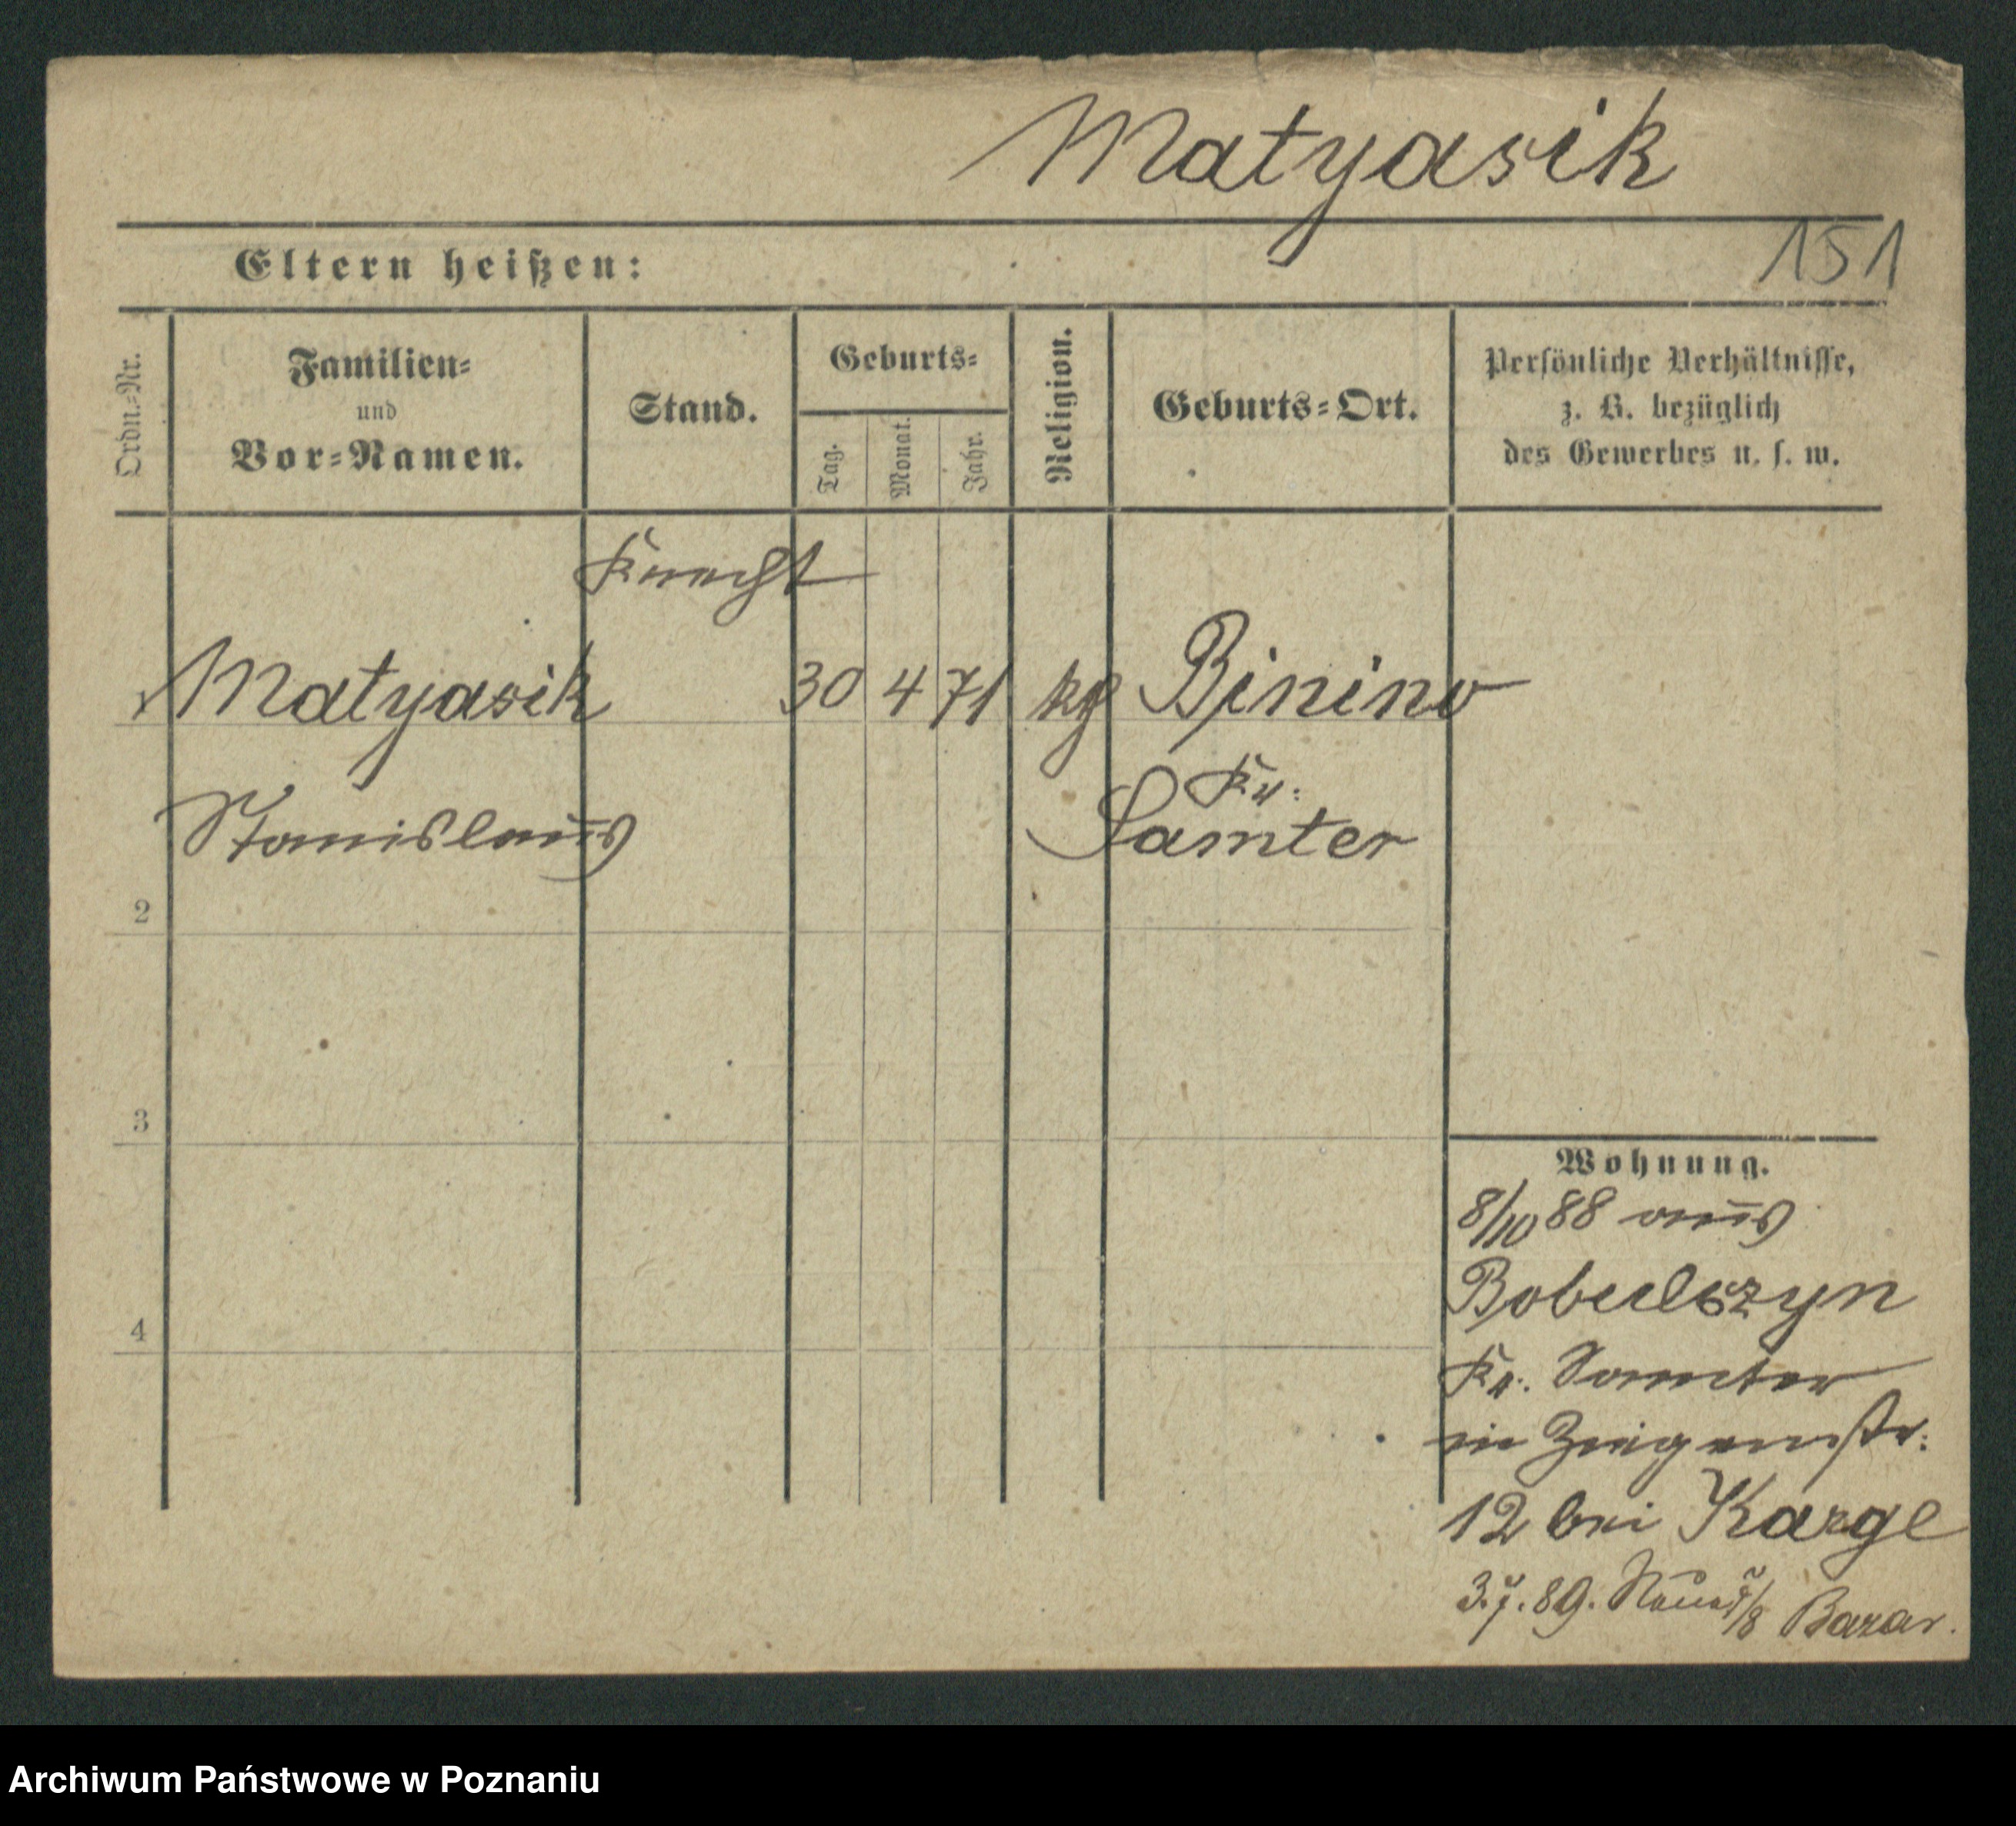 Matyasik
151
Eltern heißen:
Ordn.-Nr.
Familien-
und
Vor-Namen.
Stand.
Geburts-
Tag.
Monat.
Jahr.
Religion.
Geburts-Ort.
Persönliche Verhältnisse,
z. B. bezüglich
des Gewerbes u. s. w.
Knecht
Matyasik 30 4 71 kg Binino
Kr.
Stanislaus Samter
2
3
4
Wohnung.
8/10 88 aus
Bobulszyn
Kr. Samter
in Ziegenstr.
12 bei Karge
3.7.89. 7/8 Bazar.
Archiwum Państwowe w Poznaniu